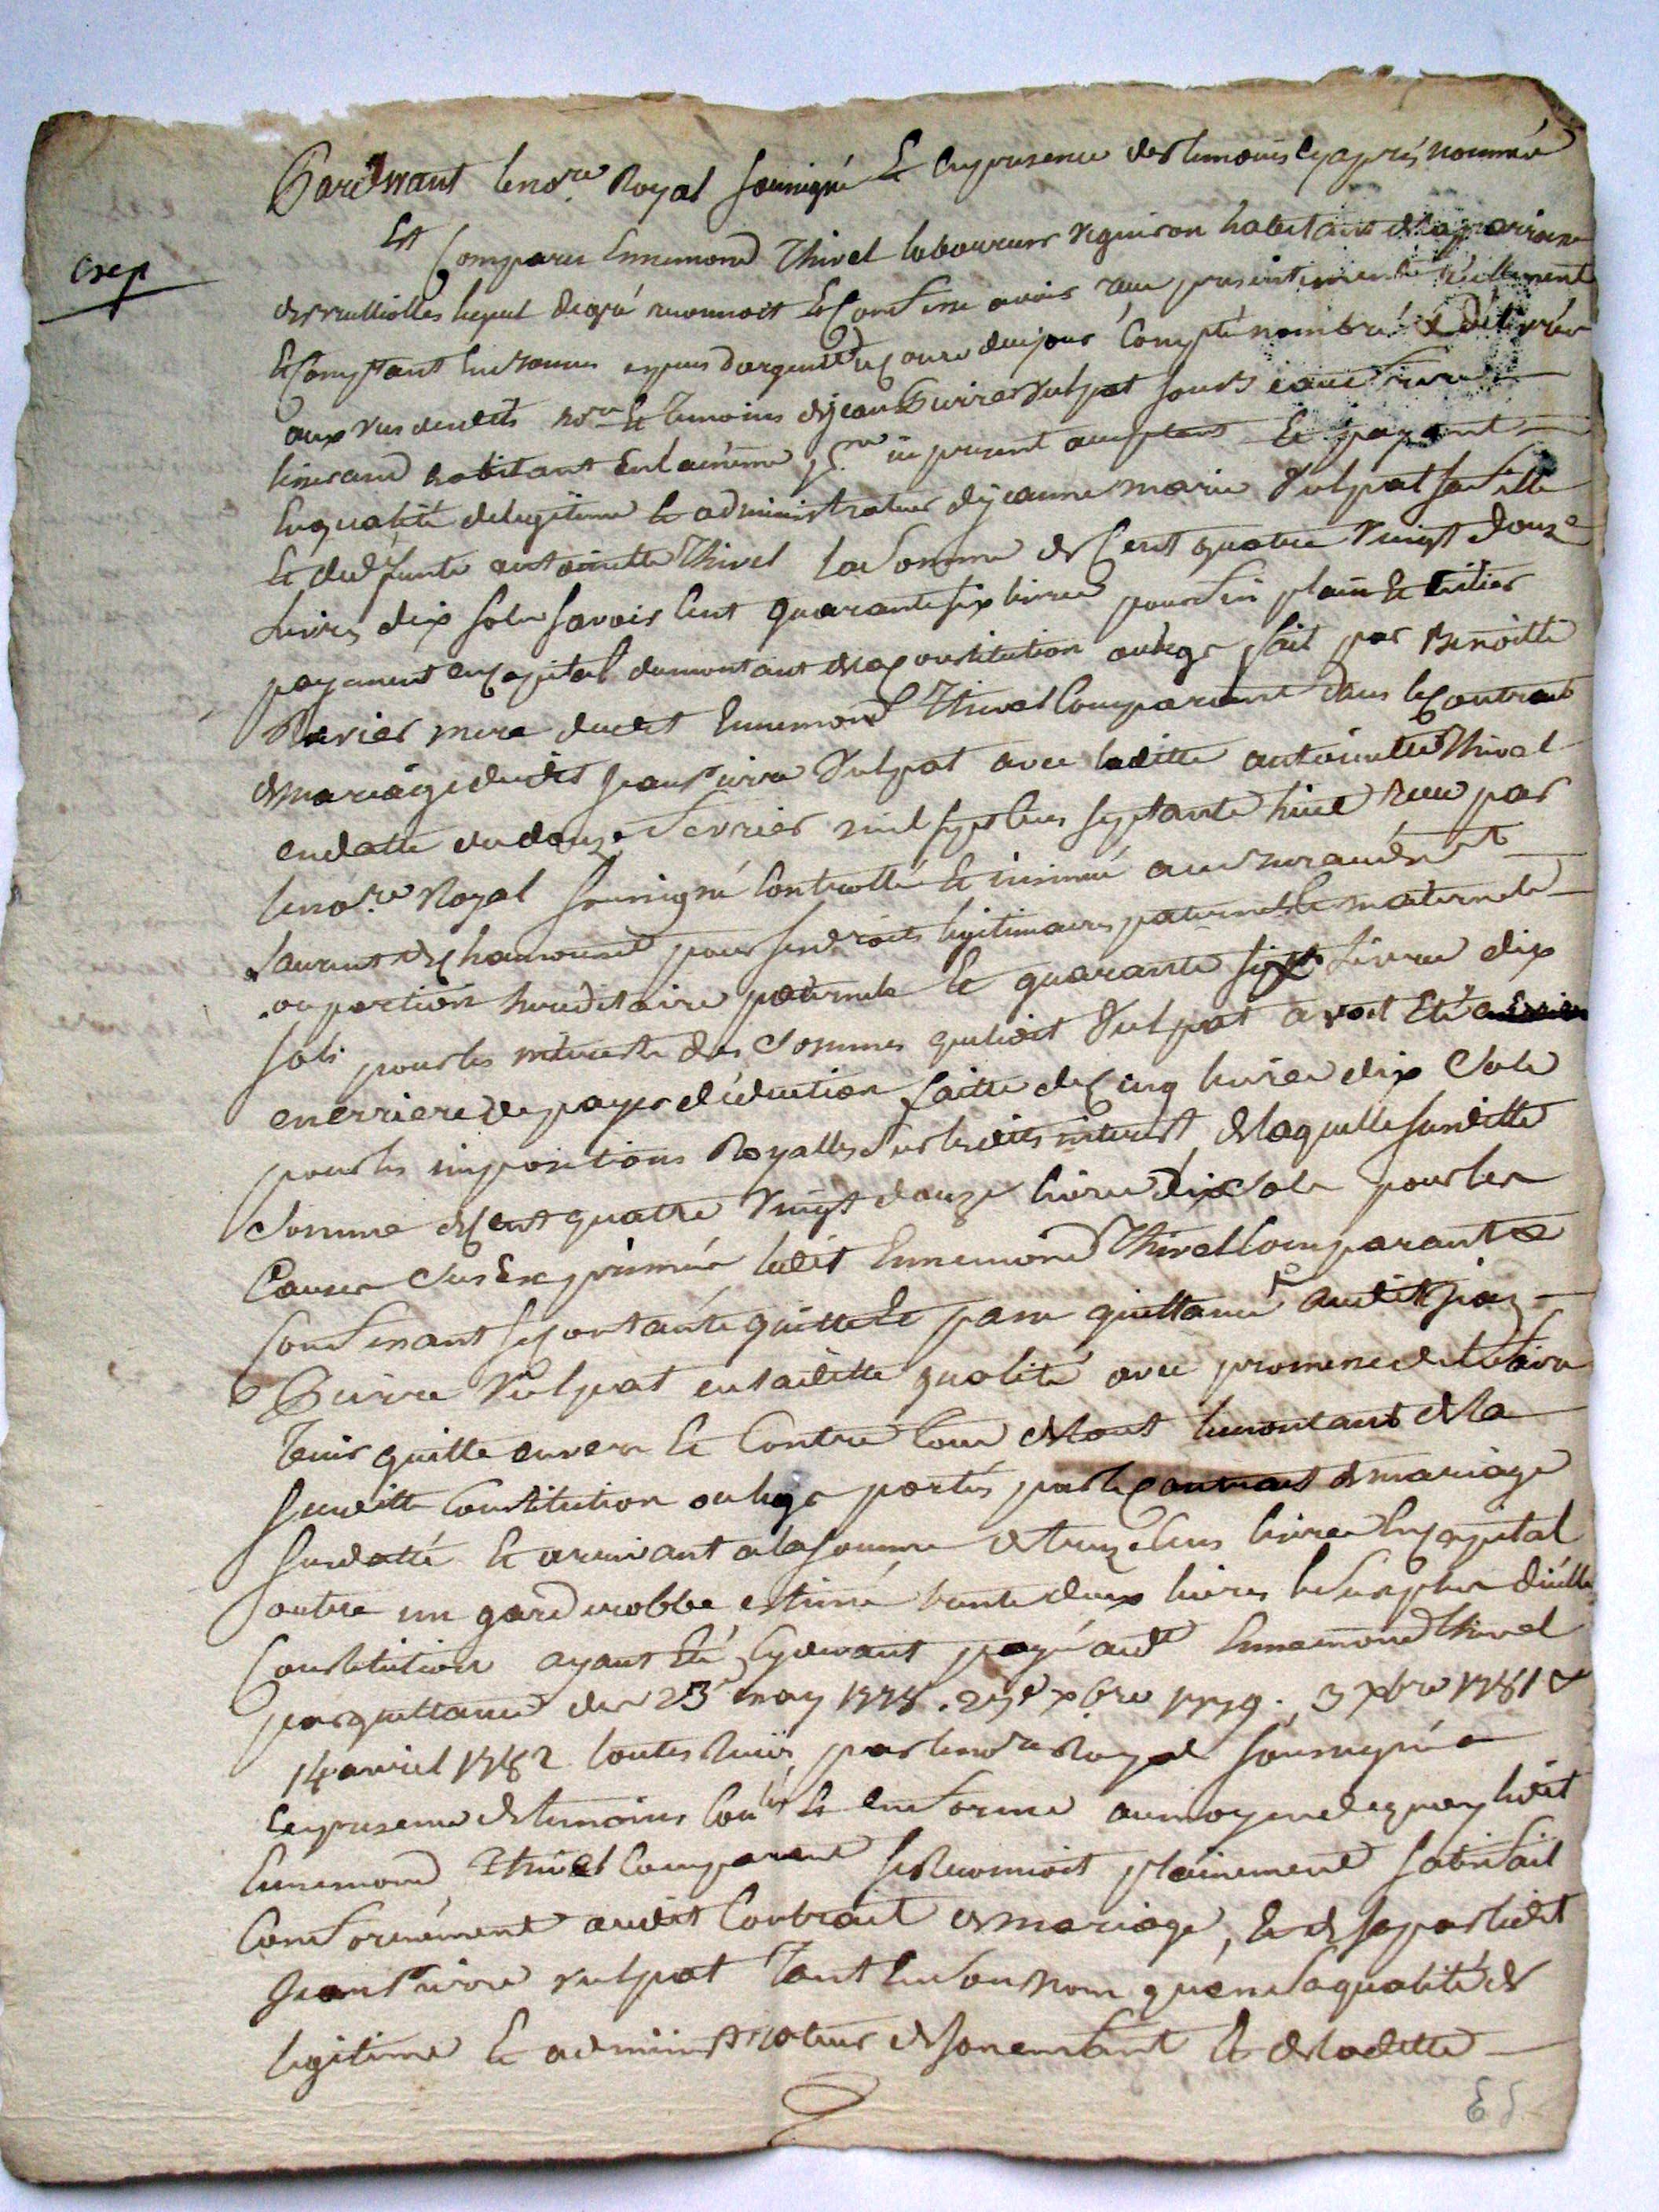 Pardevant le no.re Royal soussigné Et En presence des temoins cy après nommés
Exp
Est Comparu Ennemond Thivel laboureur vigneron habitant de la parroisse
lequel de gré reconnoit Et Confesse avoir reçu presentement réellement
Et Comptant En sommes especes d'argent de Cours de ce jour Compté nombré & délivrée
aux vus desdits no.re Et temoins de jean Pierre Vulpat
tisserand habitant En la même p.sse ici present acceptant Et payant
En qualité de legitime Et administrateur de jeanne marie Vulpat sa fille
Et de deffunte antoinette Thivel la Somme de Cent quatre Vingt douze
Livres dix sols savoir Cent quarante six livres pour fin plain Et Entier
payement en Capital du montant de la Constitution au legs fait par Benoitte
mere dudit Ennemond Thivel Comparant dans le Contrat
de mariage dudit Jean Pierre Vulpat avec laditte antoinette Thivel
en datte du douze Fevrier mil sept Cens septante huit reçu par
le no.re Royal soussigné Controllé Et insinué au bureau de St
Laurent de Chamousset pour ses droits legitimaires paternels Et maternels
ou portion hereditaire paternelle Et quarante six Livres dix
sols pour les interests des Sommes que ledit Vulpat avoit Eté
en arriere de payer déduction faitte de Cinq livres dix Sols
pour les impositions Royalles Sur lesdits interest, de laquelle susditte
Somme de Cent quatre Vingt douze livres dix Sols pour les
Causes Sus Exprimées ledit Ennemond Thivel Comparant Se
Confessant Se Contante quitte Et passe quittance audit jean
Pierre Vulpat en saditte qualité avec promesse de le faire
tenir quitte envers Et Contre tous de tout le montant de la
susditte Constitution ou legs portés par le Contrat de mariage
susdatté Et arrivant a la somme de treize Cens livres En Capital
outre un garderobbe estimé trente deux livres le Surplus d'icelle
Constitution ayant Eté Cydevant payé aud.t Ennemond Thivel
par quittance des 23 may 1778. 27e xbre 1779. 3 xbre 1781 &
14 avril 1782 toutes reçües par le no.re Royal soussigné
En presence de temoins Con.lés Et En forme au moyen de quoy ledit
Ennemond Thivel Comparant se Reconnoit plainement satisfait
Conformément audit Contrait de mariage, Et de sa part ledit
Jean Pierre vulpat tant En Son Nom qu'en Sa qualité de
legitime Et administrateur de Son enfant Et de laditte